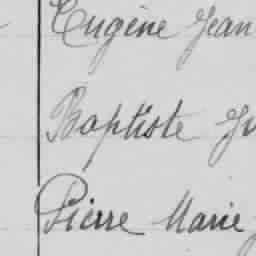 Eugène Jean
Baptiste
Pierre Marie